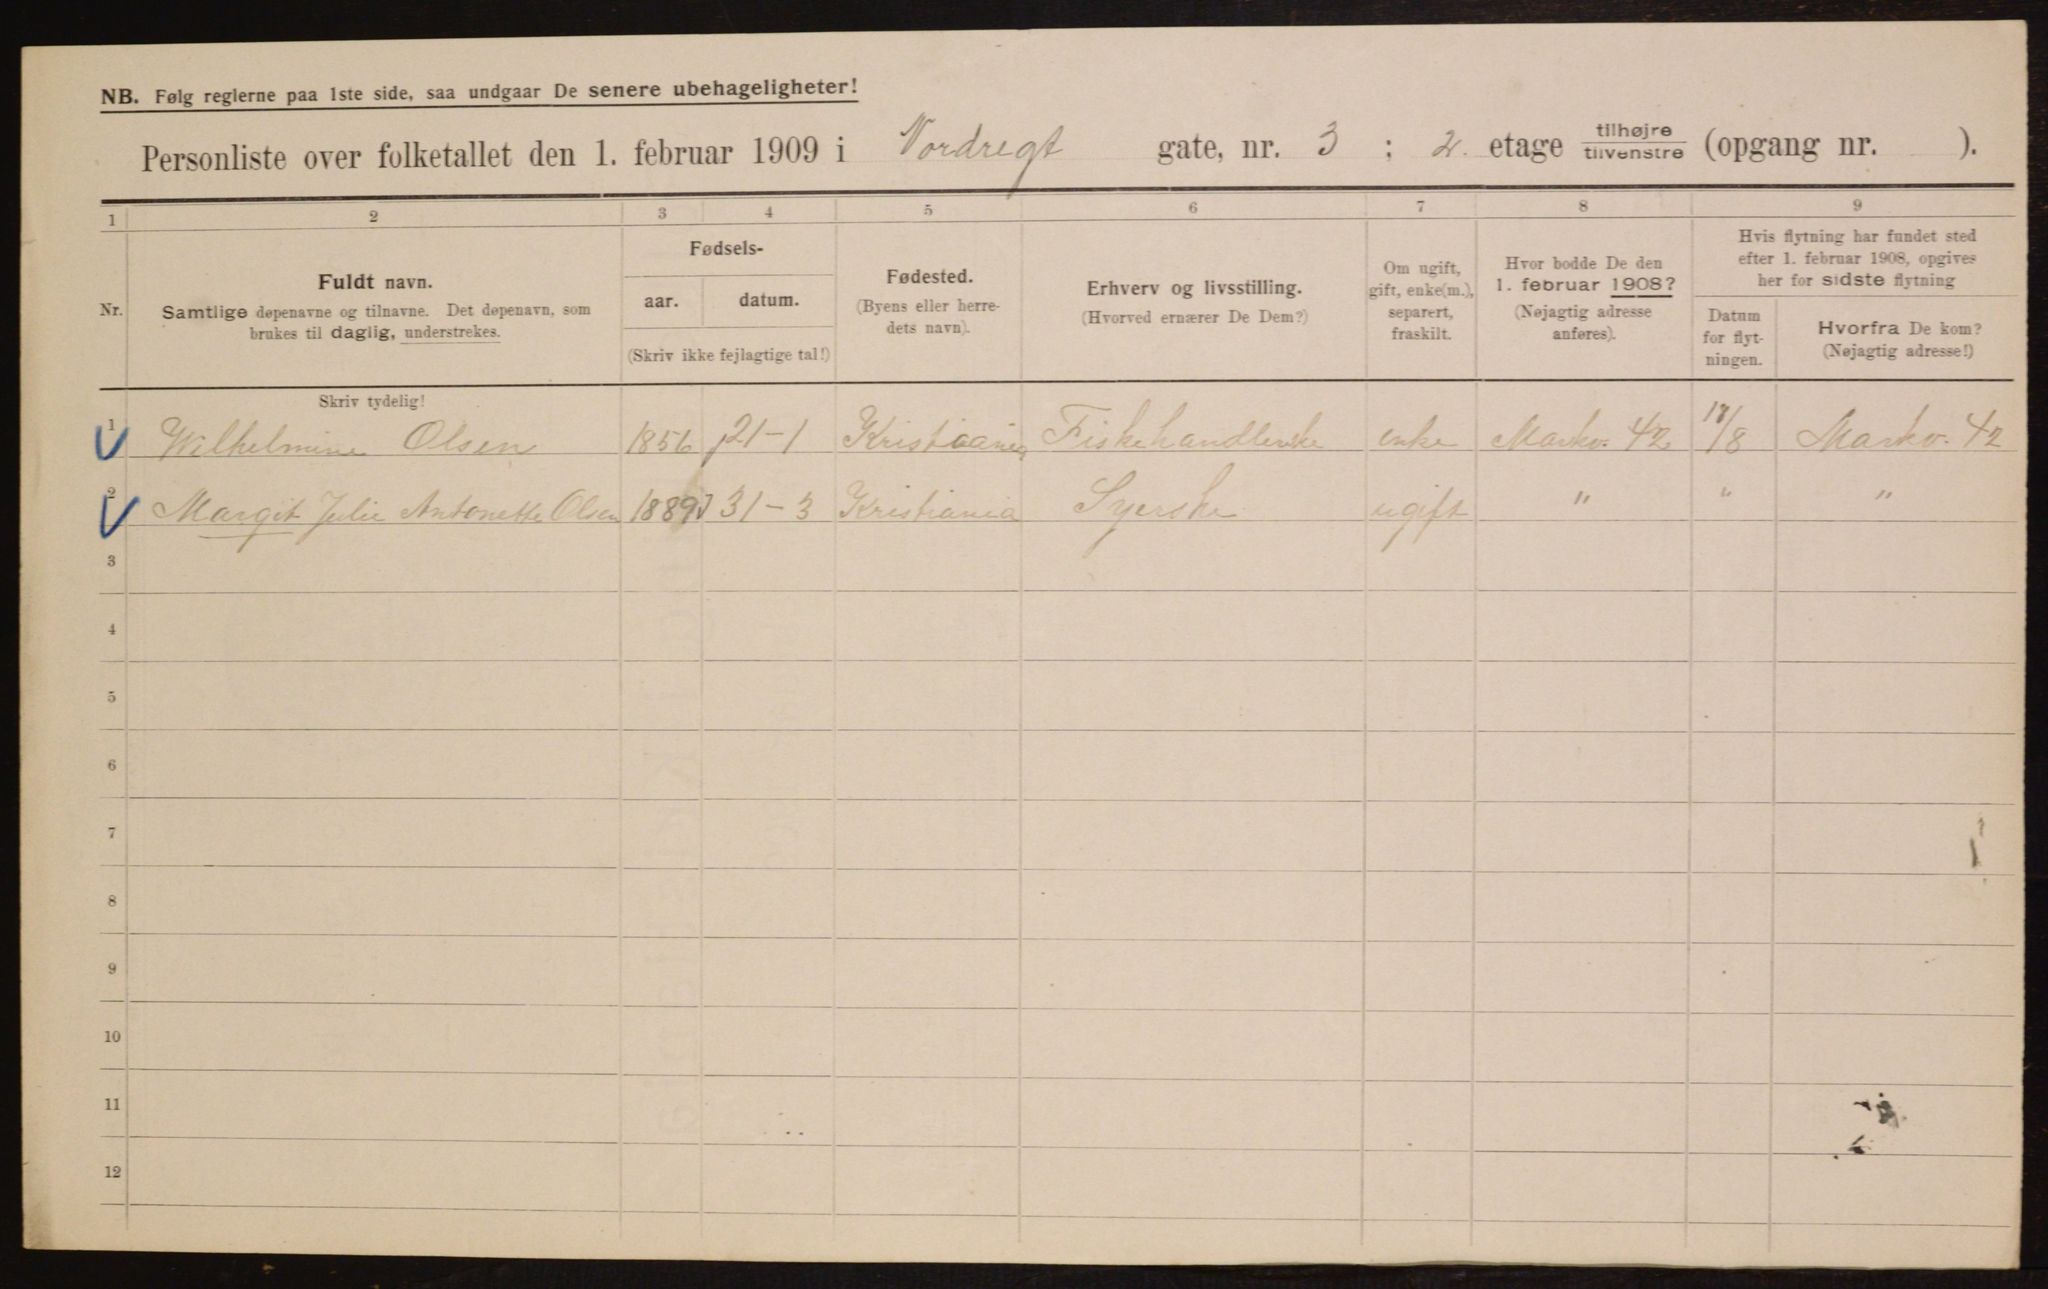 NB. Følg reglerne paa 1ste side, saa undgaar De senere ubehageligheter!
Personliste over folketallet den 1. februar 1909 i Nordregt gate, nr. 3 ; 2. etage tilhøjre tilvenstre (opgang nr. ).
1 2 3 4 5 6 7 8 9
Nr.
Fuldt navn.
Samtlige døpenavne og tilnavne. Det døpenavn, som
brukes til daglig, understrekes.
Fødsels-
aar. datum.
(Skriv ikke fejlagtige tal!)
Fødested.
(Byens eller herre-
dets navn).
Erhverv og livsstilling.
(Hvorved ernærer De Dem?)
Om ugift,
gift, enke(m.),
separert,
fraskilt.
Hvor bodde De den
1. februar 1908?
(Nøjagtig adresse
anføres).
Hvis flytning har fundet sted
efter 1. februar 1908, opgives
her for sidste flytning
Datum
for flyt-
ningen.
Hvorfra De kom?
(Nøjagtig adresse!)
Skriv tydelig!
1 Wilhelmine Olsen 1856 21-1 Kristiania Fiskehandlerske enke Markv. 42 /8 Markv. 42
2 Margit Julie Antonette Olsen 1889 31-3 Kristiania Syerske ugift " " "
3
4
5
6
7
8
9
10
11
12